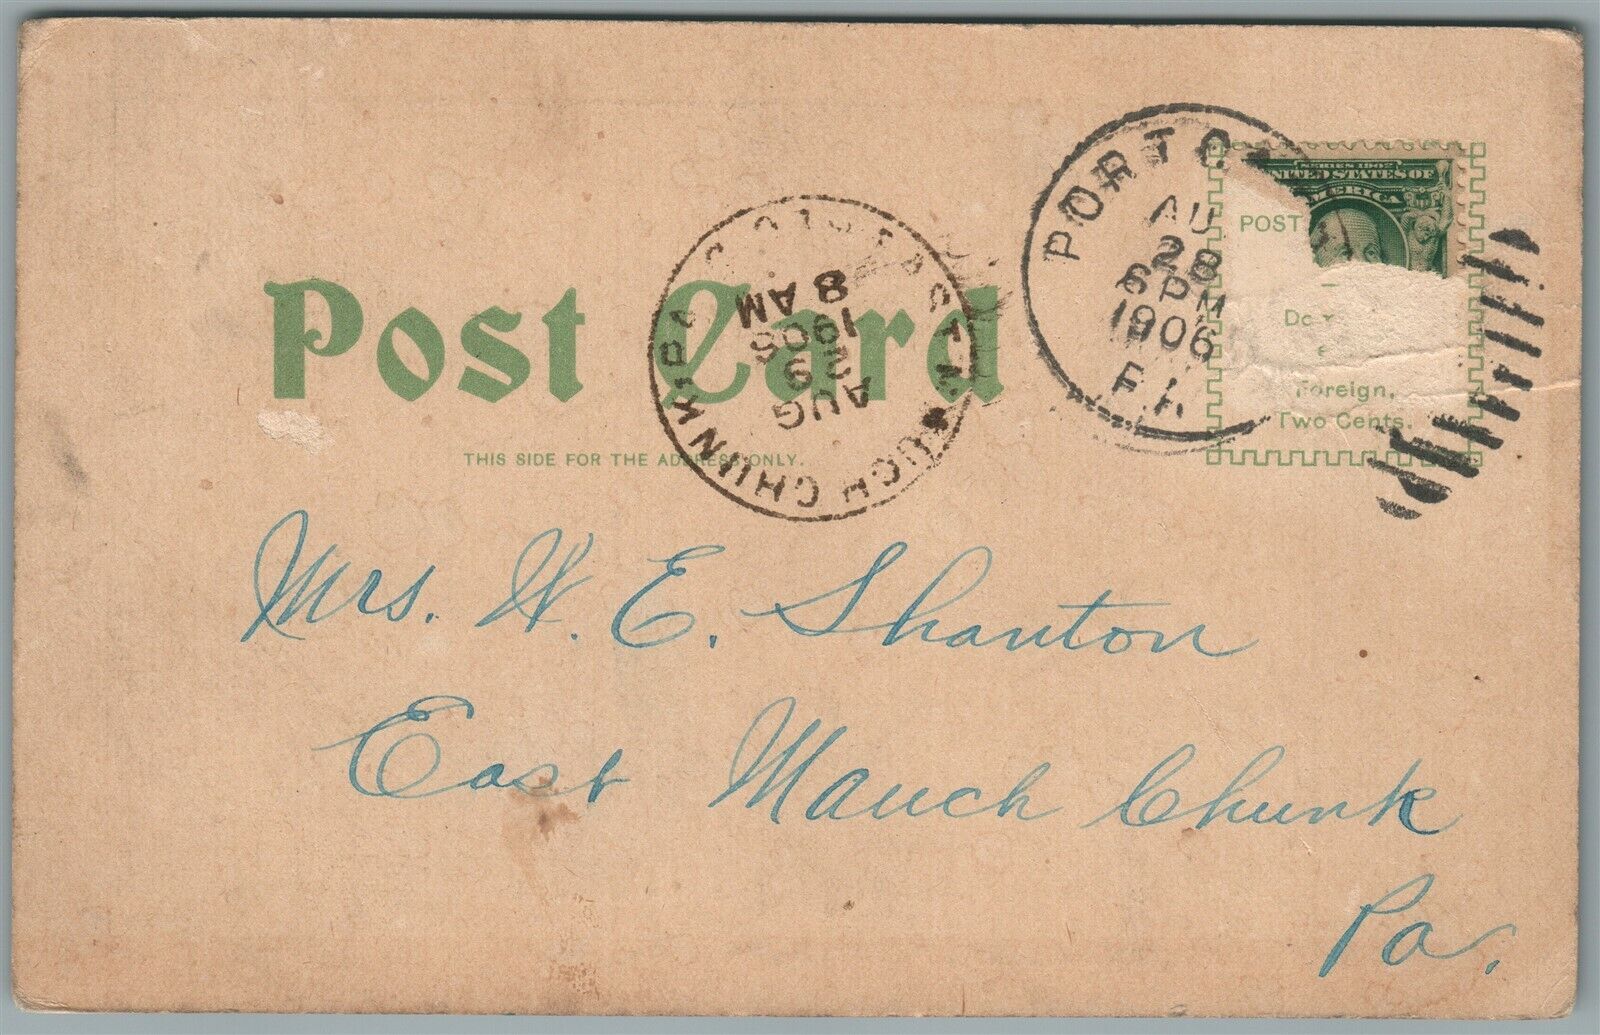 SERIES 1902
UNITED STATES OF
AMERICA
POST
Foreign,
Two Cents.
AU
28
6 PM
1906
8 AM
1906
29
AUG
EAST MAUCH CHUNK, PA.
Post Card
THIS SIDE FOR THE ADDRESS ONLY.
Mrs. W. E. Shanton
East Mauch Chunk
Pa.